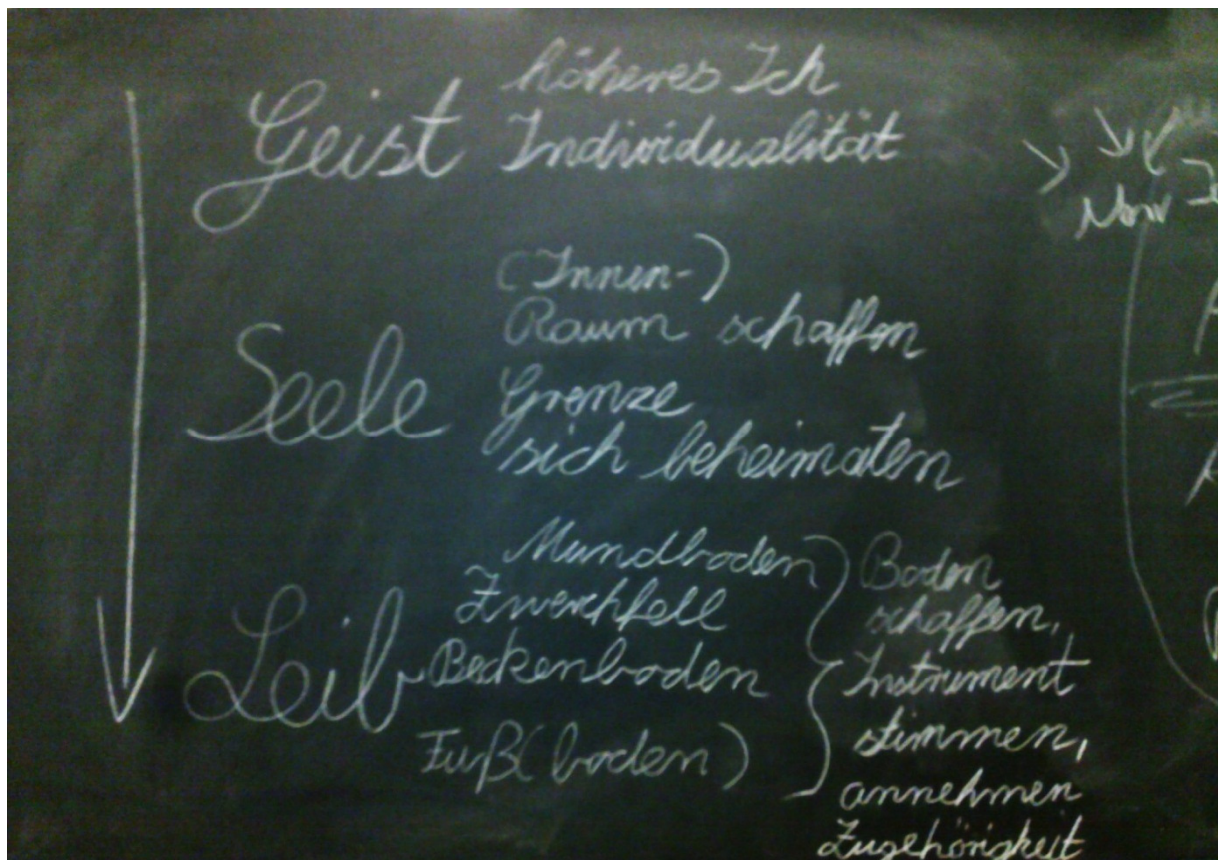 höheres Ich
Geist Individualität
(Innen-)
Raum schaffen
Seele Grenze
sich beheimaten
Mundboden
Zwerchfell
Leib Beckenboden
Fuß(boden)
Boden
schaffen,
Instrument
stimmen,
annehmen
Zugehörigkeit